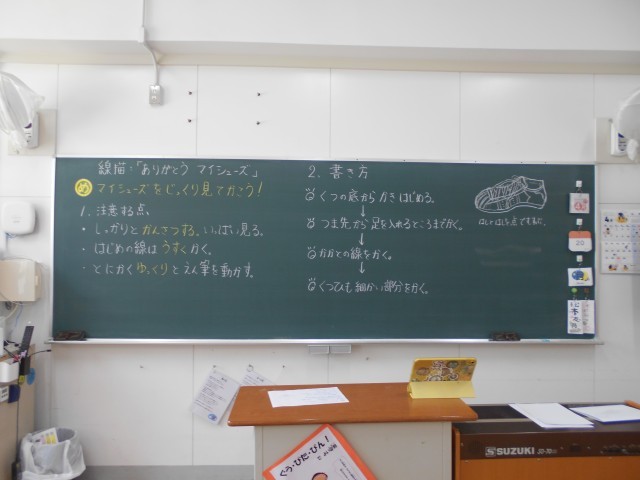 線描:「ありがとう マイシューズ」
め マイシューズをじっくり見てかこう!
1. 注意する点。
・しっかりとかんさつする。いっぱい見る。
・はじめの線はうすくかく。
・とにかくゆっくりとえん筆を動かす。
2. 書き方
くつの底からかきはじめる。
↓
つま先から足を入れるところまでかく。
↓
かかとの線をかく。
↓
くつひも細かい部分をかく。
20
ぐう・ぴた・ぴん!
SUZUKI